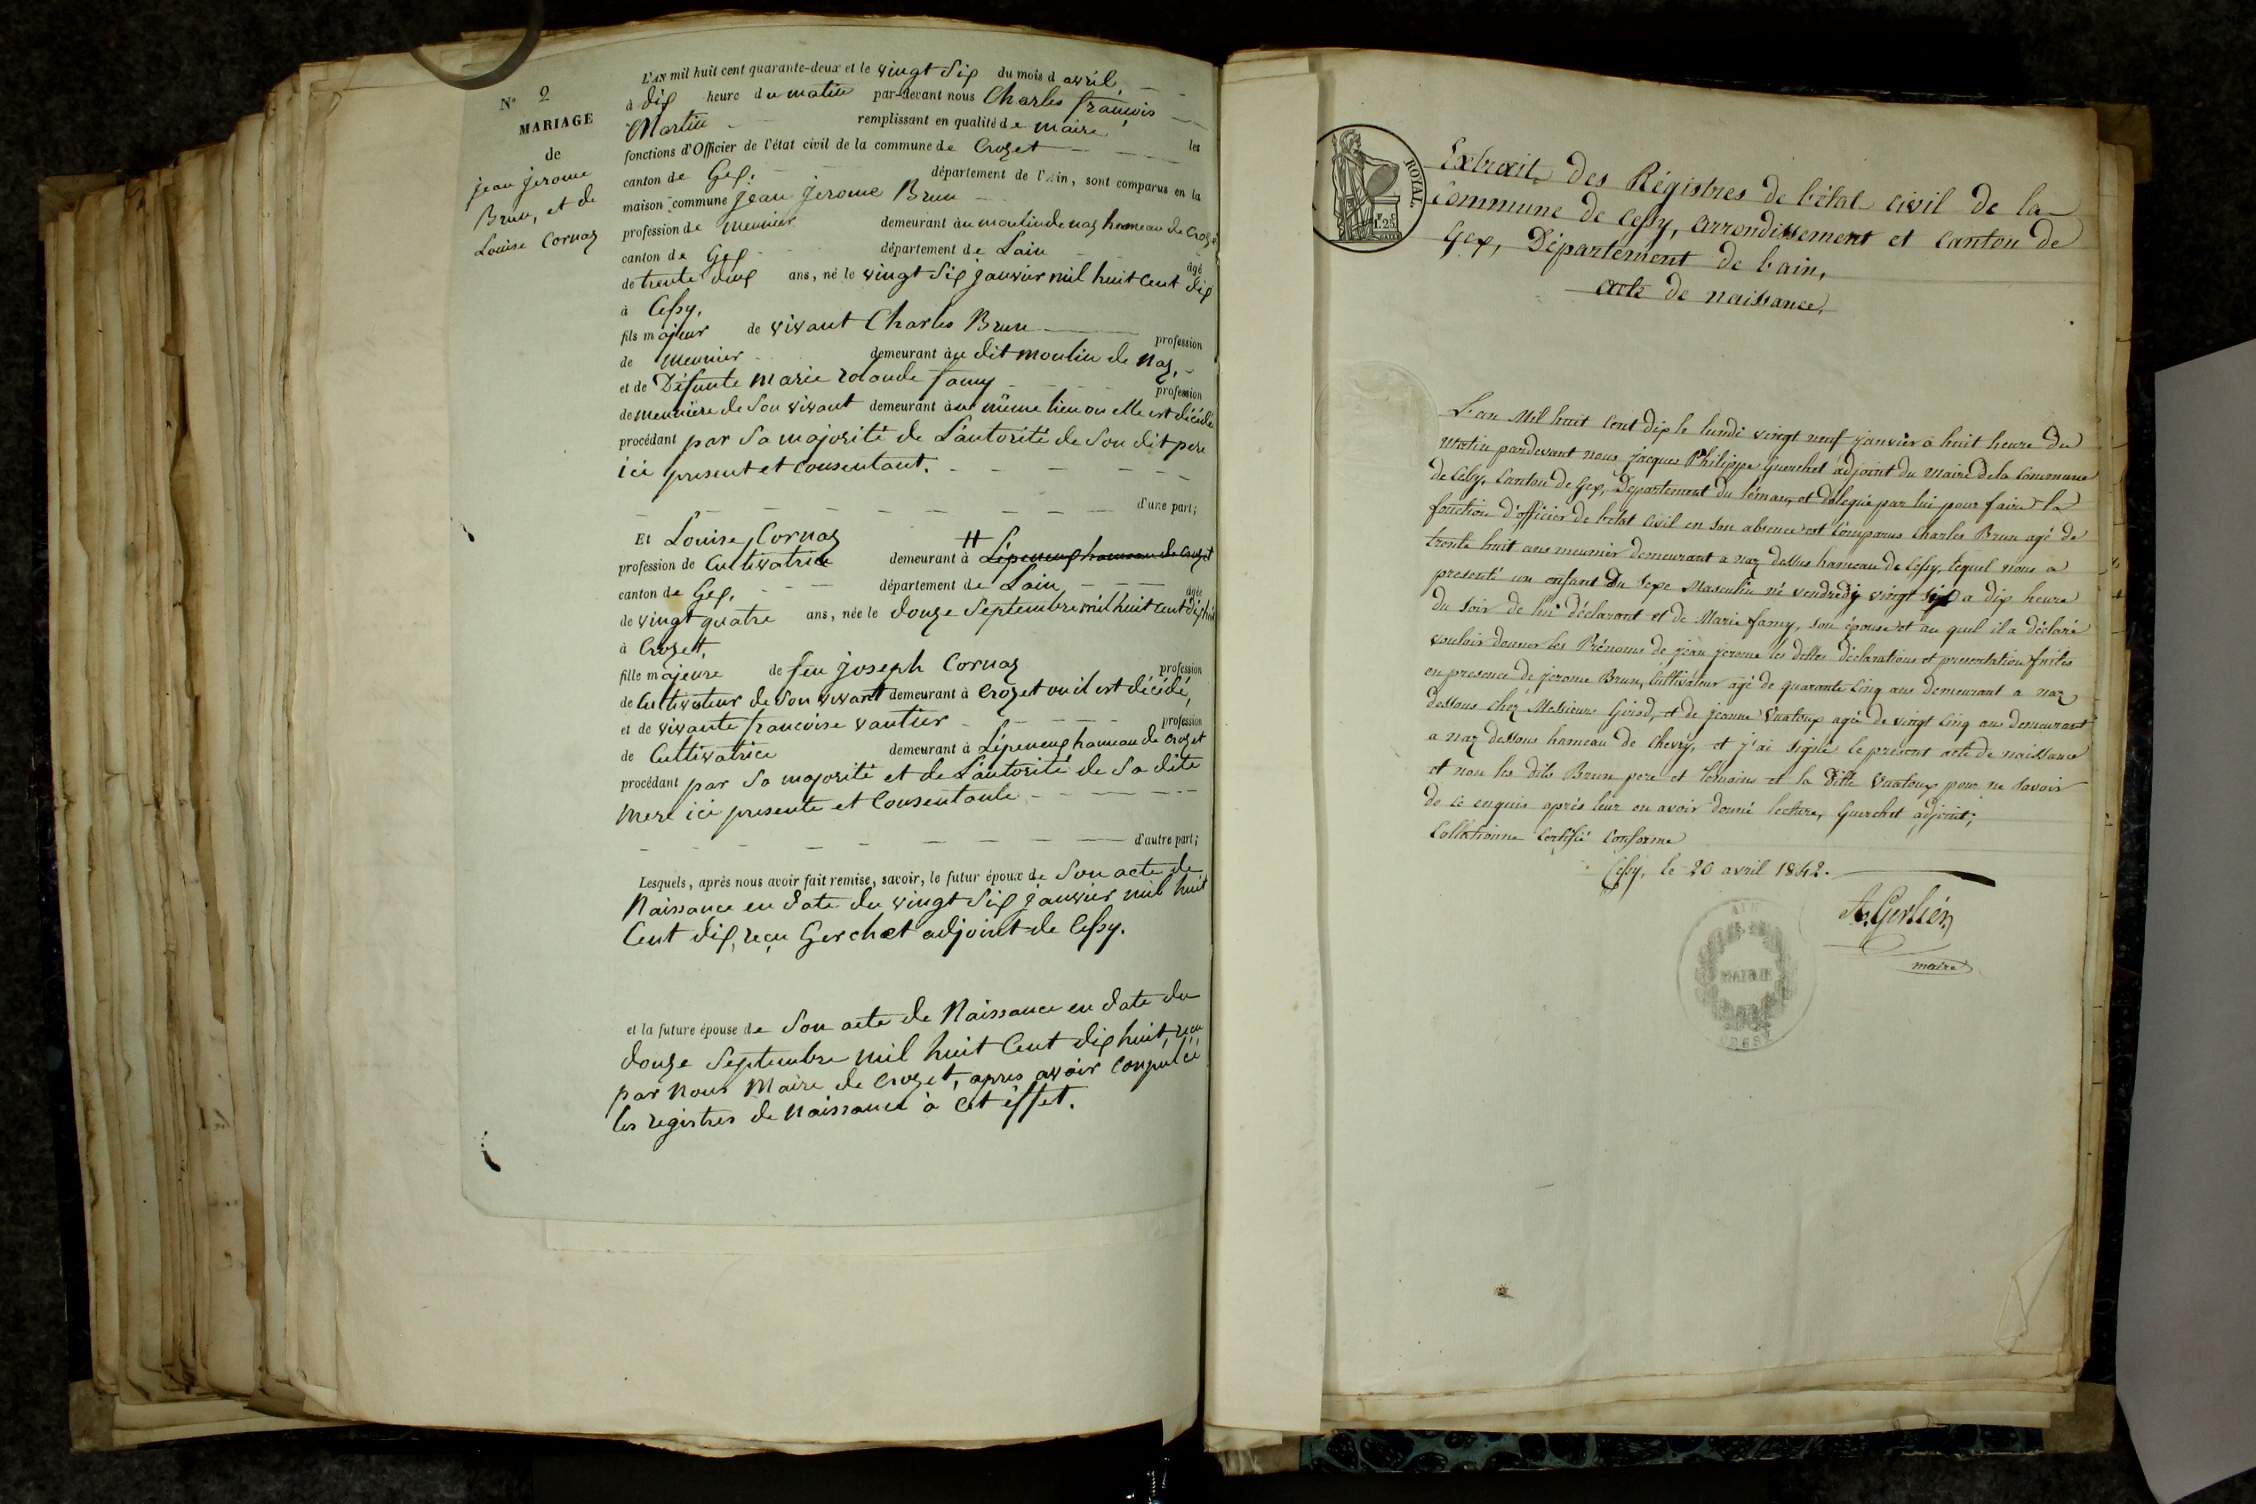 N° 2
MARIAGE
de
jean jerome
Brun, et de
Louise Cornaz
L'AN mil huit cent quarante-deux et le vingt Six du mois d avril,
à dix heure du matin par-devant nous Charles françois
Martin remplissant en qualité de maire les
fonctions d'Officier de l'état civil de la commune de Crozet
canton de Gex. département de l'Ain, sont comparus en la
maison commune jean jerome Brun
profession de meunier demeurant au moulin de naz hameau de Crozet
canton de Gex département de Lain âgé
de trente deux ans, né le vingt Six janvier mil huit Cent dix
à Cessy.
fils majeur de vivant Charles Brun profession
de meunier demeurant à u dit moulin de Naz,
et de Défunte Marie rolande famy profession
de meunière de Son vivant demeurant à u même lieu ou elle est décédé
procédant par Sa majorité de L'autorité de Son dit pere
ici present et Consentant.
d'une part;
Et Louise Cornaz
profession de Cultivatrice demeurant à H Lépeneux hameau de Crozet
canton de Gex. département de Lain âgée
de vingt quatre ans, née le douze Septembre mil huit cent dix huit
à Crozet,
fille majeure de feu joseph Cornaz profession
de Cultivateur de Son vivant demeurant à Crozet ou il est décédé,
et de vivante francoise vautier profession
de Cultivatrice demeurant à Lépeneux hameau de Crozet
procédant par Sa majorité et de L'autorité de Sa dite
Mere ici presente et Consentante
d'autre part;
Lesquels, après nous avoir fait remise, savoir, le futur époux de Son acte de
Naissance en date du vingt Six janvier mil huit
Cent dix, reçu Gerchet adjoint de Cessy.
et la future épouse de Son acte de Naissance en date du
douze Septembre mil huit Cent dix huit, reçu
par Nous Maire de Crozet, apres avoir Conpulcé
les registres de Naissance à Cet éffet.
ROYAL
1.25
Extrait des Régistres de l'état civil de la
Commune de Cessy, arrondissement et Canton de
Gex, Département de l'ain,
acte de naissance,
L'an Mil huit Cent dix le lundi vingt neuf janvier à huit heure du
matin pardevant nous jacques Philippe Guerchet adjoint du maire de la Commune
de Cessy, Canton de Gex, Departement du léman, et délegué par lui pour faire la
fonction d'officier de l'état Civil en son absence est Comparus Charles Brun agé de
trente huit ans meunier demeurant a naz dessus hameau de Cessy, lequel nous a
presenté un enfant du sexe Masculin né vendredy vingt six a dix heure
du soir de lui déclarant et de Marie famy, son épouse et au quel il a déclaré
vouloir donner les Prénoms de jean jerome les dittes déclarations et presentation faites
en presence de jerome Brun, Cultivateur agé de quarante Cinq ans demeurant a naz
dessous chez Messieurs Girod, et de jeanne Vualoux agée de vingt Cinq ans demeurant
a naz dessous hameau de Chevry, et j'ai signé le present acte de naissance
et non les dits Brun pere et témoins et la ditte Vualoux pour ne savoir
de ce enquis après leur en avoir donné lecture, Guerchet adjoint;
Collationné Certifié Conforme
Cessy, le 20 avril 1842.
A. Gerlier
maire
AIN
MAIRIE
CESSY